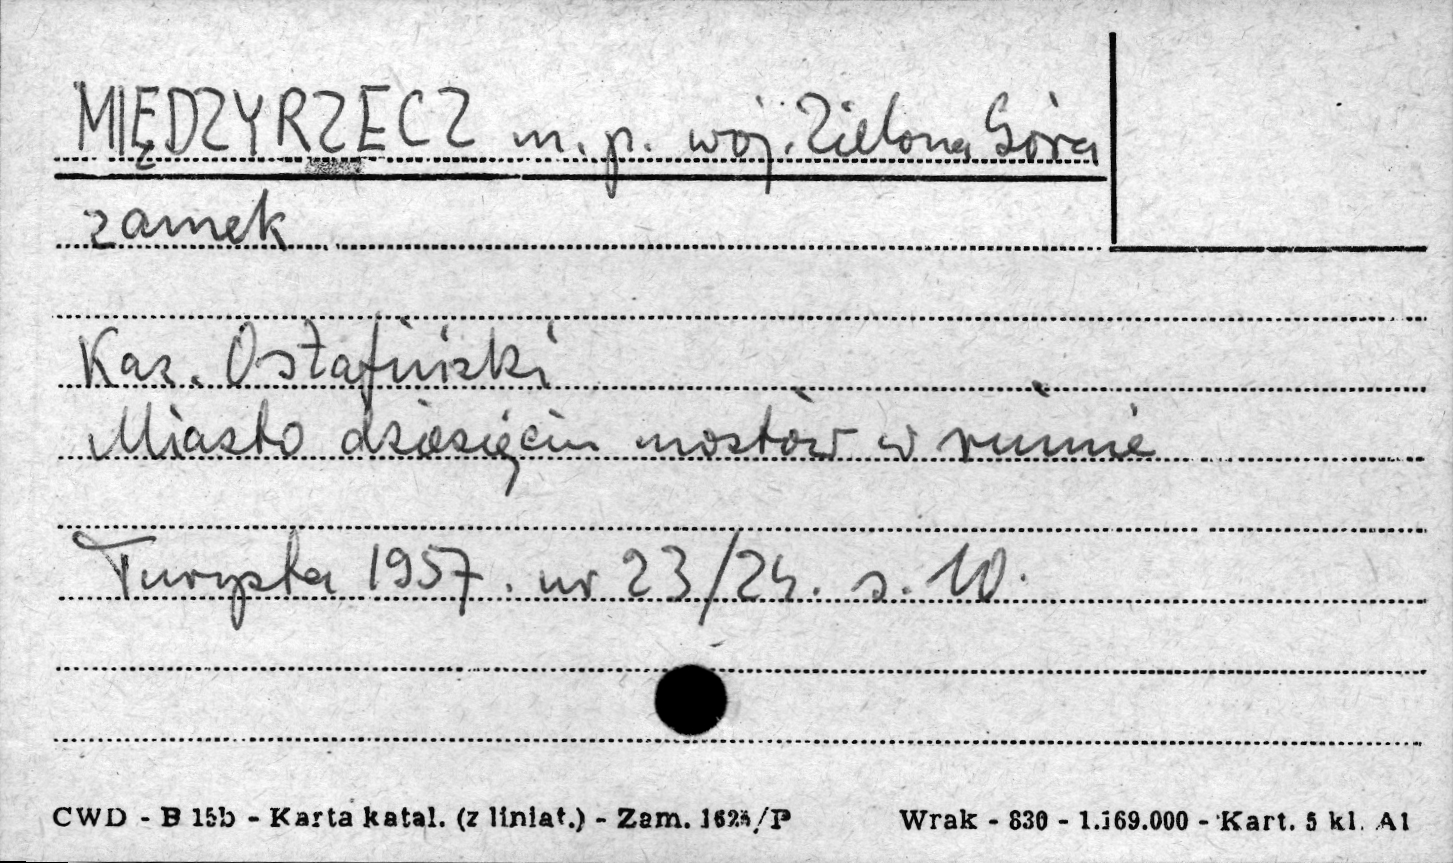 MIĘDZYRZECZ m. p. woj. Zielona Góra
zamek
Kaz. Ostafiński
Miasto dziesięciu mostów w ruinie
Turysta 1957. nr 23/24. s. 10.
CWD - B 15b - Karta katal. (z liniat.) - Zam. /P Wrak - 830 - 1.169.000 - Kart. 5 kl. A1